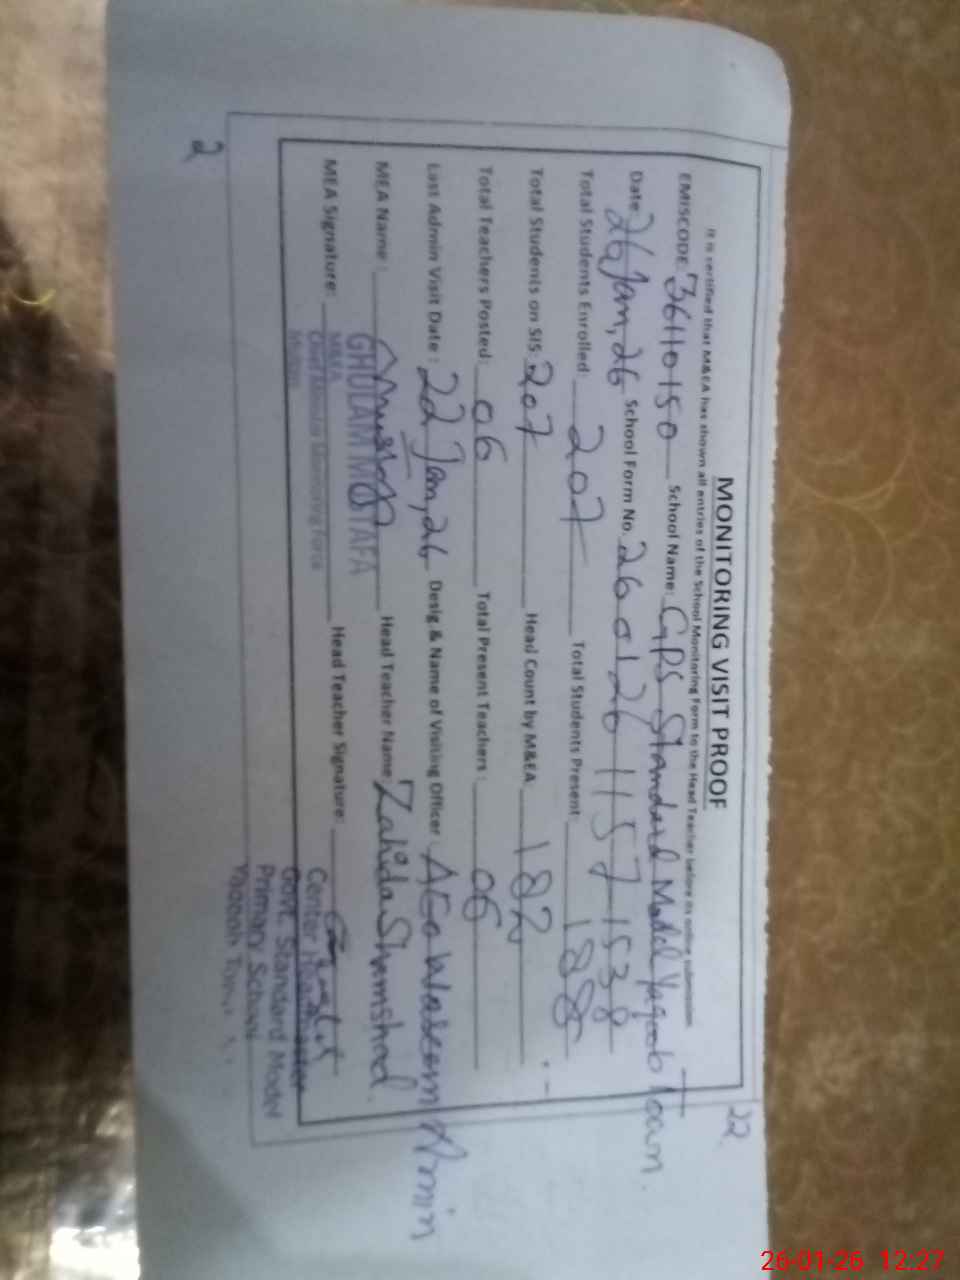 22
MONITORING VISIT PROOF
It is certified that M&EA has shown all entries of the School Monitoring Form to the Head Teacher before its online submission
EMISCODE: 36110150 School Name: GPS Standard Model Yaqoob Town.
Date: 26 Jan, 26 School Form No. 26012611571538
Total Students Enrolled: 207 Total Students Present: 188
Total Students on SIS: 207 Head Count by M&EA 182
Total Teachers Posted: 06 Total Present Teachers: 06
Last Admin Visit Date: 22 Jan, 26 Desig & Name of Visiting Officer: AEO Waseem Amin
MEA Name: Mustafa Head Teacher Name: Zahida Shamshad.
GHULAM MUSTAFA
MEA Signature: Head Teacher Signature:
M&EA
Chief Minister Monitoring Force
Center
Govt. Standard Model
Primary School
Yaqoob Town
2
26-01-26 12:27